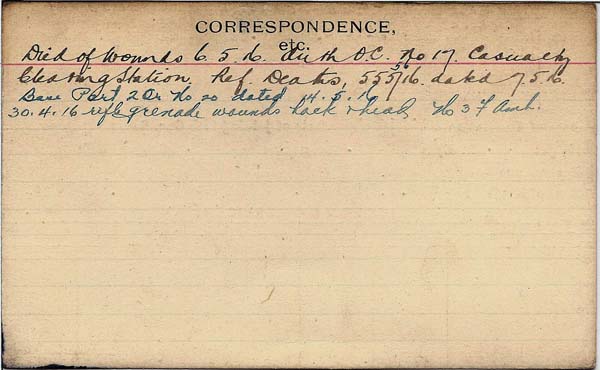 CORRESPONDENCE,
etc.
Died of Wounds 6.5.16. auth O.C. No 17. Casualty
Clearing Station. Ref. Deaths, dated 7.5.16.
Base Part 2 Or No 20 dated 14.5.16
30.4.16 rifle grenade wounds back & head, No 3 F Amb.